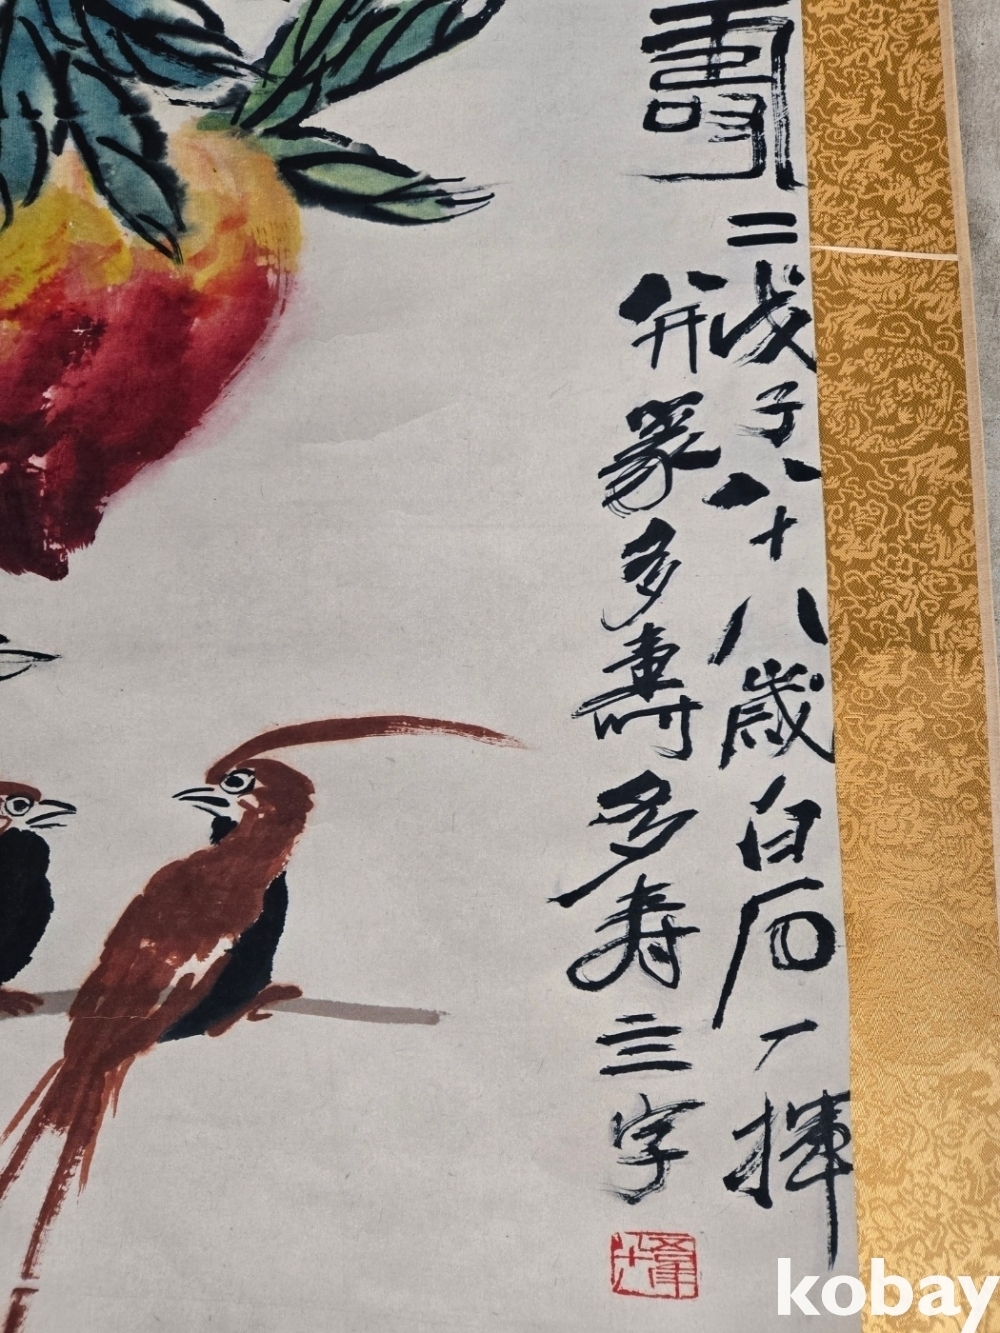 壽二
戊子八十八歲白石一揮
并篆多壽多寿三字
kobay